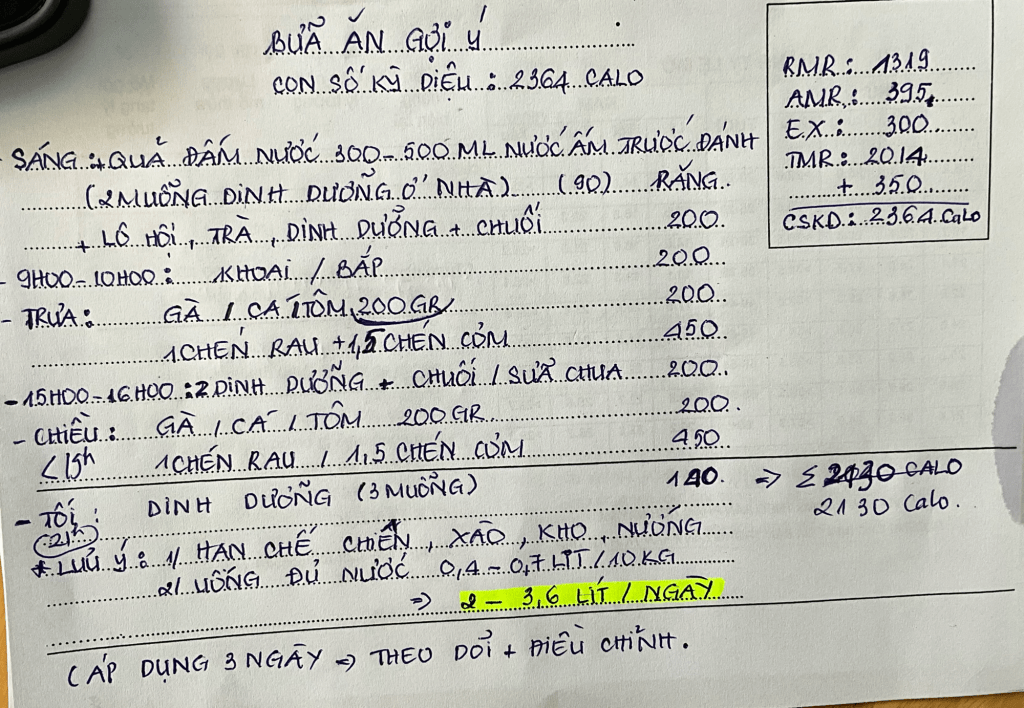 BỮA ĂN GỢI Ý
CON SỐ KỲ DIỆU : 2364 CALO
RMR : 1319
AMR : 395
EX : 300
TMR : 2014
+ 350
CSKD : 2364 Calo
- SÁNG : + QUẢ ĐẤM NƯỚC 300 - 500 ML NƯỚC ẤM TRƯỚC ĐÁNH
(2 MUỖNG DINH DƯỠNG Ở NHÀ) (90) RĂNG
+ LÔ HỘI, TRÀ, DINH DƯỠNG + CHUỐI 200
- 9H00 - 10H00 : KHOAI / BẮP 200
- TRƯA : GÀ / CÁ / TÔM 200 GR 200
1 CHÉN RAU + 1,5 CHÉN CƠM 450
- 15H00 - 16H00 : 2 DINH DƯỠNG + CHUỐI / SỮA CHUA 200
- CHIỀU : GÀ / CÁ / TÔM 200 GR 200
< 19h 1 CHÉN RAU / 1,5 CHÉN CƠM 450
- TỐI : DINH DƯỠNG (3 MUỖNG) 140 => Σ 2130 CALO
(21h) 2130 Calo.
* LƯU Ý : 1/ HẠN CHẾ CHIÊN, XÀO, KHO, NƯỚNG
2/ UỐNG ĐỦ NƯỚC 0,4 - 0,7 LÍT / 10 KG
=> 2 - 3,6 LÍT / NGÀY
(ÁP DỤNG 3 NGÀY => THEO DÕI + ĐIỀU CHỈNH.